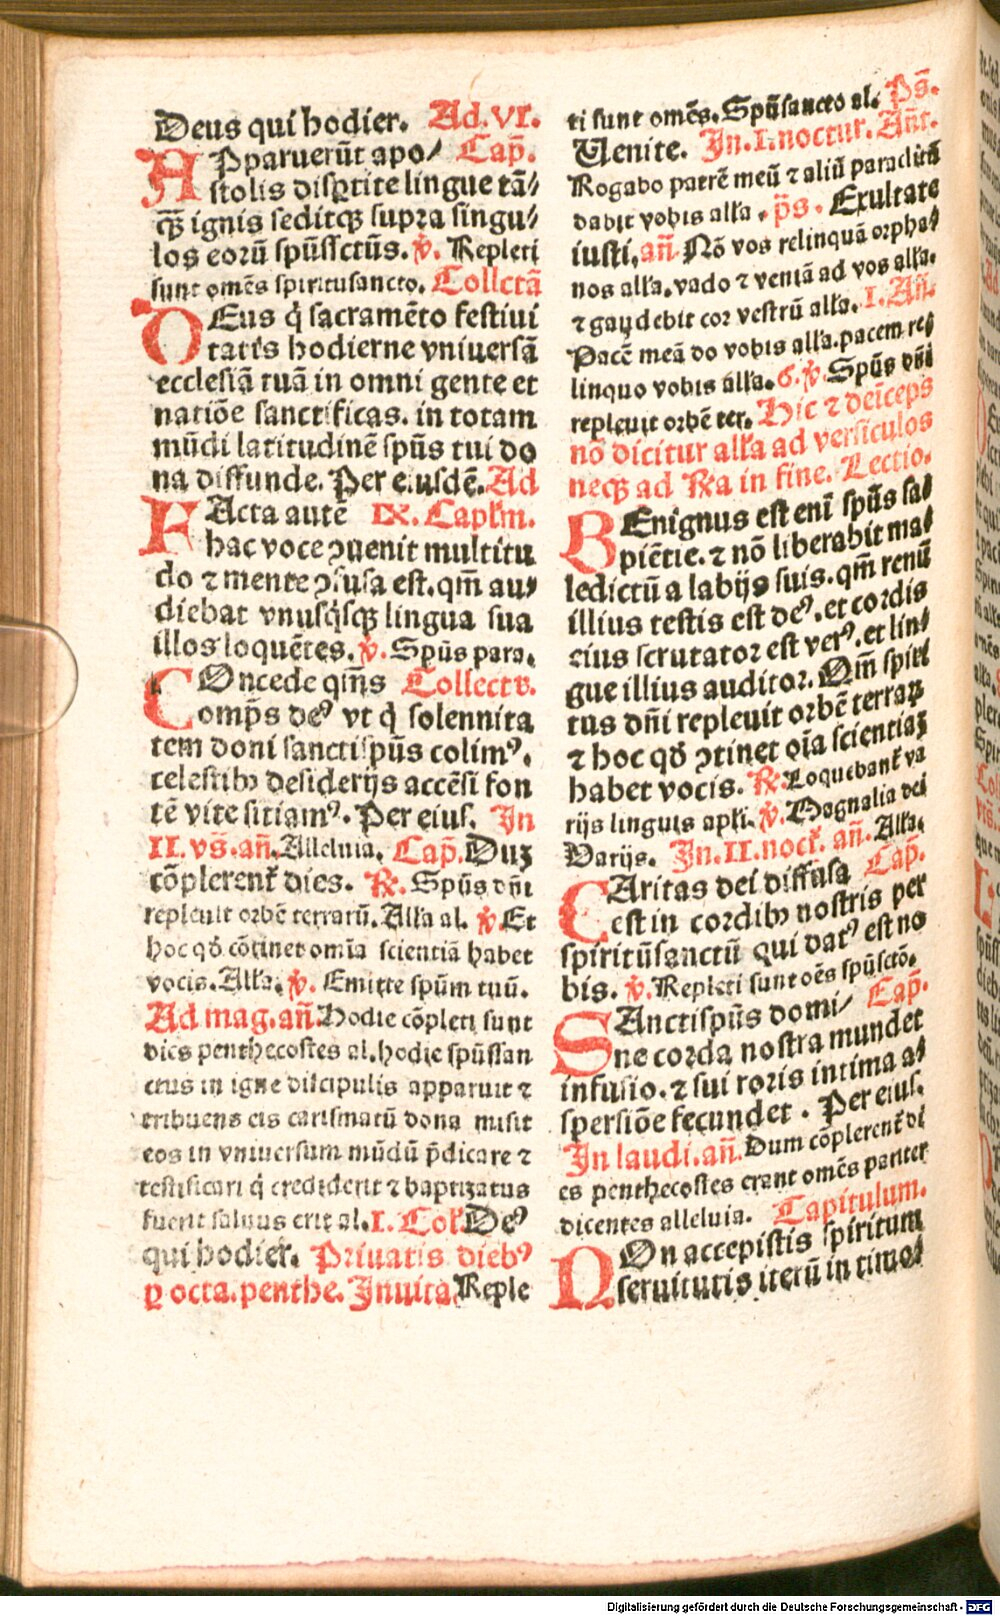 Deus qui hodier. Ad. VI.
APparuerūt apo/ Cap̄.
stolis disꝑtite lingue tā/
q̄ꝫ ignis seditqꝫ supra singu/
los eorū spūssctūs. v̄. Repleti
sunt omēs spiritusancto. Collctā
DEus q̇ sacramēto festiui
tatis hodierne vniuersā
ecclesiā tuā in omni gente et
natiōe sanctificas. in totam
mūdi latitudinē spūs tui do
na diffunde. Per eiusdē. Ad
FActa autē IX. Caplm.
hac voce ꝯuenit multitu
do ⁊ mente ꝯfusa est. qm̄ au/
diebat vnusq̇sqꝫ lingua sua
illos loquētes. v̄. Spūs para.
COncede qm̄s Collectv.
omp̄s deꝰ vt q̇ solennita
tem doni sanctispūs colimꝰ.
celestibꝫ desiderijs accēsi fon
tē vite sitiamꝰ. Per eius. In
II. vs̄. an̄. Alleluia. Cap̄. Duꝫ
cōplerent̉ dies. ℟. Spūs dn̄i
repleuit orbē terrarū. Alla al. v̄. Et
hoc qd̄ cōtinet omīa scientiā habet
vocis. Alla. v̄. Emitte spūm tuū.
Ad mag. an̄. Hodie cōpleti sunt
dies penthecostes al. hodie spūssan
ctus in igne discipulis apparuit ⁊
tribuens eis carismatū dona misit
eos in vniuersum mūdū p̄dicare ⁊
testificari q̇ crediderit ⁊ baptizatus
fuerit saluus erit al. I. Col. Deꝰ
qui hodier. Priuatis diebꝰ
ꝑ octa. penthe. Inuita. Reple
ti sunt omēs. Spūsancto al. Ps̄.
Uenite. In. I. noctur. An̄t.
Rogabo patrē meū ⁊ aliū paraclitū
dabit vobis alla. ps̄. Exultate
iusti. an̄. Nō vos relinquā orpha/
nos alla. vado ⁊ veniā ad vos alla.
⁊ gaudebit cor vestrū alla. I. An̄.
Pacē meā do vobis alla. pacem re/
linquo vobis alla. 6. v̄. Spūs dn̄i
repleuit orbē ter. Hic ⁊ deīceps
nō dicitur alla ad versiculos
neqꝫ ad ℟a in fine. Lectio.
BEnignus est enī spūs sa/
piētie. ⁊ nō liberabit ma/
ledictū a labijs suis. qm̄ renū
illius testis est deꝰ. et cordis
eius scrutator est verꝰ. et lin/
gue illius auditor. Qm̄ spiri
tus dn̄i repleuit orbē terraꝝ
⁊ hoc qd̄ ꝯtinet oīa scientiaꝫ
habet vocis. ℟. Loquebant̉ va
rijs linguis apli. v̄. Magnalia dei
Varijs. In. II. noct̉. an̄. Alla.
CAritas dei diffusa Cap̄.
est in cordibꝫ nostris per
spiritūsanctū qui datꝰ est no
bis. v̄. Repleti sunt oēs spūsctō.
SAnctispūs domi/ Cap̄.
ne corda nostra mundet
infusio. ⁊ sui roris intima a/
spersiōe fecundet. Per eius.
In laudi. an̄. Dum cōplerent̉ di
es penthecostes erant omēs pariter
dicentes alleluia. Capitulum.
NOn accepistis spiritum
seruitutis iterū in timo/
Digitalisierung gefördert durch die Deutsche Forschungsgemeinschaft - DFG